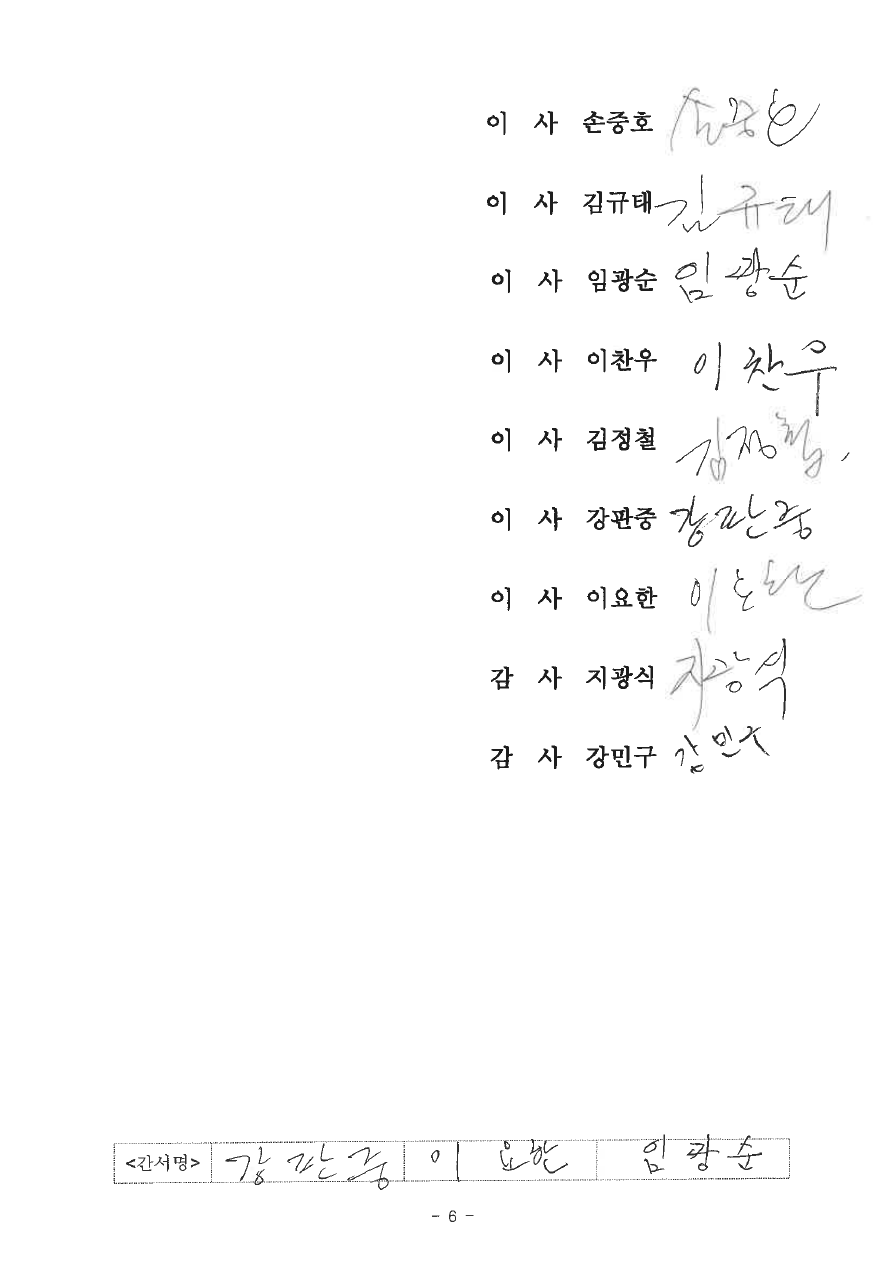 이 사 손중호 손중호
이 사 김규태 김규태
이 사 임광순 임광순
이 사 이찬우 이찬우
이 사 김정철 김정철
이 사 강판중 강판중
이 사 이요한 이요한
감 사 지광식 지광식
감 사 강민구 강민구
<간서명> 강판중 이요한 임광순
- 6 -